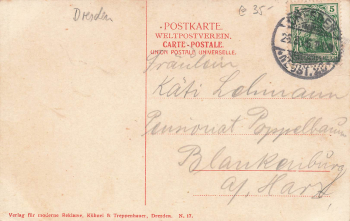 Dresden
€ 35-
POSTKARTE
WELTPOSTVEREIN.
CARTE-POSTALE.
UNION POSTALE UNIVERSELLE.
5 5
Fräulein
Käti Lohmann
Pensionat Poppelbaum
Blankenburg
a/ Harz
Verlag für moderne Reklame, Kühnel & Treppenhauer, Dresden. N. 17.